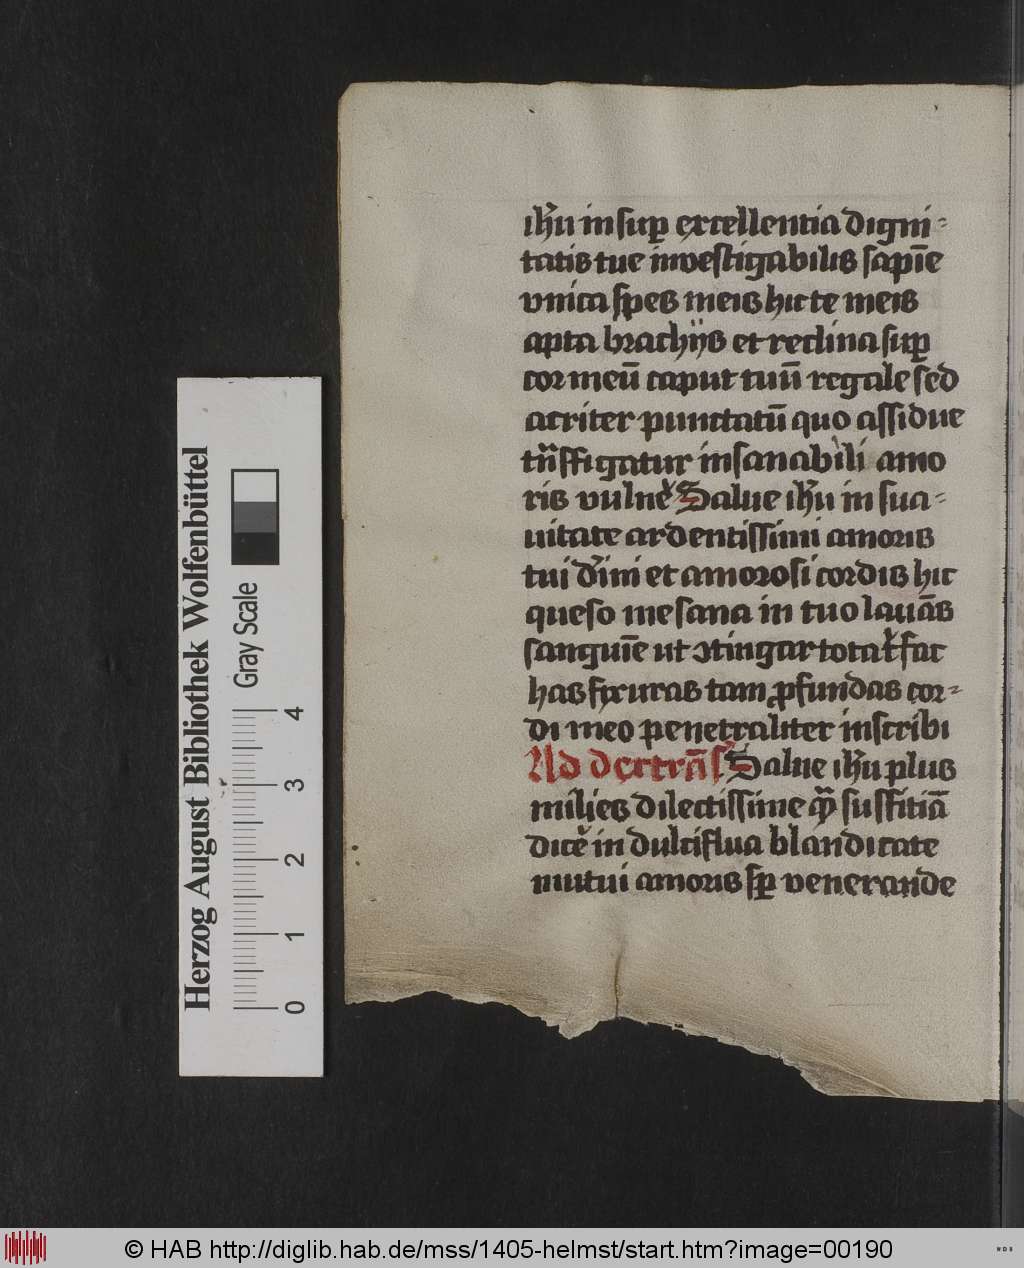 ihū in suꝑ excellentia digni-
tatis tue investigabilis sapīe
vnica spes meis hic te meis
apta brachijs et reclina suꝑ
cor meū caput tuū regale sed
acriter punctatū quo assidue
tñsffigatur insanabili amo
ris vulnē Salue ihū in sua-
uitate ardentissimi amoris
tui dīni et amorosi cordis hic
queso me sana in tuo lauās
sanguīe ut ꝯtingar totat fac
has fixuras tam ꝓfundas cor-
di meo penetraliter inscribi
Ad dextrā Salue ihū plus
milies dilectissime qͫ suffitiā
dicē in dulciflua blanditate
mutui amoris sꝑ venerande
Herzog August Bibliothek Wolfenbüttel
Gray Scale
0 1 2 3 4
© HAB http://diglib.hab.de/mss/1405-helmst/start.htm?image=00190